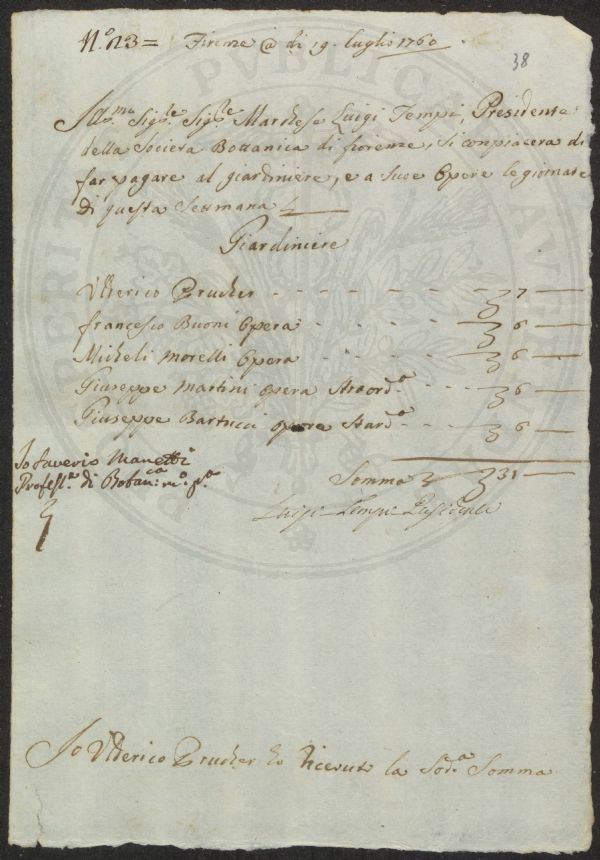 N.º 23 = Firenze @ di 19. luglio 1760
38
Ill.mo Sig.re Sig.re Marchese Luigi Tempi, Presidente
della Societa Bottanica di fiorenze, si conpiacera di
far pagare al giardiniere, e a sue Opere le giornate
di questa Settimana
Giardiniere
Ulderico Prucher - - - - - - 7 —
francesco Buoni Opera - - - - 6 —
Micheli Morelli Opera - - - - 6 —
Giuseppe Martini opera straord.a - - 6 —
Giuseppe Bartucci opera stard.a - - 6 —
Io Saverio Manetti
Profess.re di Botan.ca m.o p.a
Somma 31 —
Luigi Tempi Presidente
Io Ulderico Prucher ho riceuto la Sod.a Somma